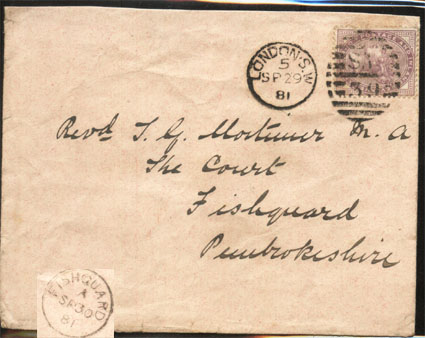 LONDON·S.W
5
SP 29
81
Revd T. G. Mortimer M. A
The Court
Fishguard
Pembrokeshire
FISHGUARD
A
SP 30
81